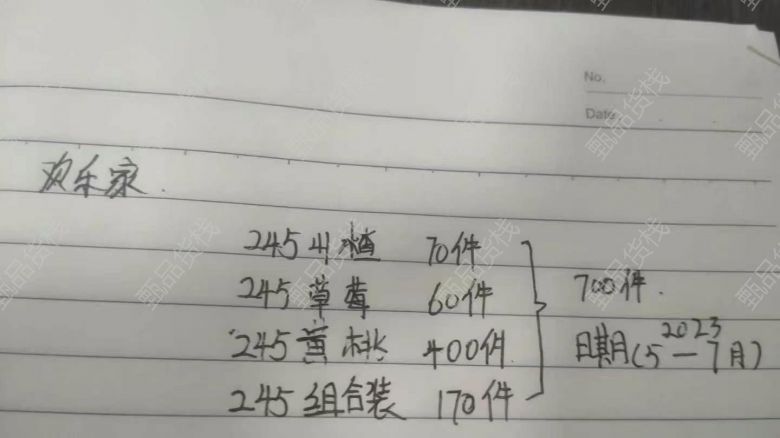 No.
Date
欢乐家.
245山楂 70件
245草莓 60件
245黄桃 400件
245组合装 170件
700件.
2023
日期(5—7月)
甄品货栈
甄品货栈
甄品货栈
甄品货栈
甄品货栈
甄品货栈
甄品货栈
甄品货栈